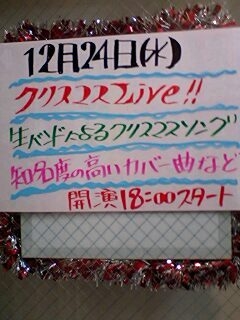 12月24日(水)
クリスマスLive!!
生バンドによるクリスマスソング
知名度の高いカバー曲など
開演18:00スタート